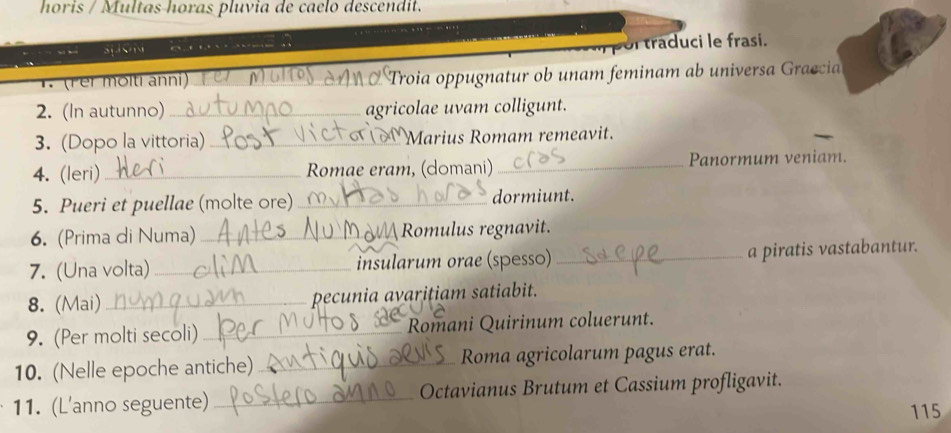 horis / Multas horas pluvia de caelo descendit.
poi traduci le frasi.
1. (Per molti anni) Per Multos anno Troia oppugnatur ob unam feminam ab universa Graecia
2. (In autunno) autumno agricolae uvam colligunt.
3. (Dopo la vittoria) Post victoriam Marius Romam remeavit.
4. (Ieri) Heri Romae eram, (domani) cras Panormum veniam.
5. Pueri et puellae (molte ore) multas horas dormiunt.
6. (Prima di Numa) Antes Numam Romulus regnavit.
7. (Una volta) clim insularum orae (spesso) saepe a piratis vastabantur.
8. (Mai) numquam pecunia avaritiam satiabit.
9. (Per molti secoli) per Multos saecula Romani Quirinum coluerunt.
10. (Nelle epoche antiche) antiquis aevis Roma agricolarum pagus erat.
11. (L'anno seguente) postero anno Octavianus Brutum et Cassium profligavit.
115